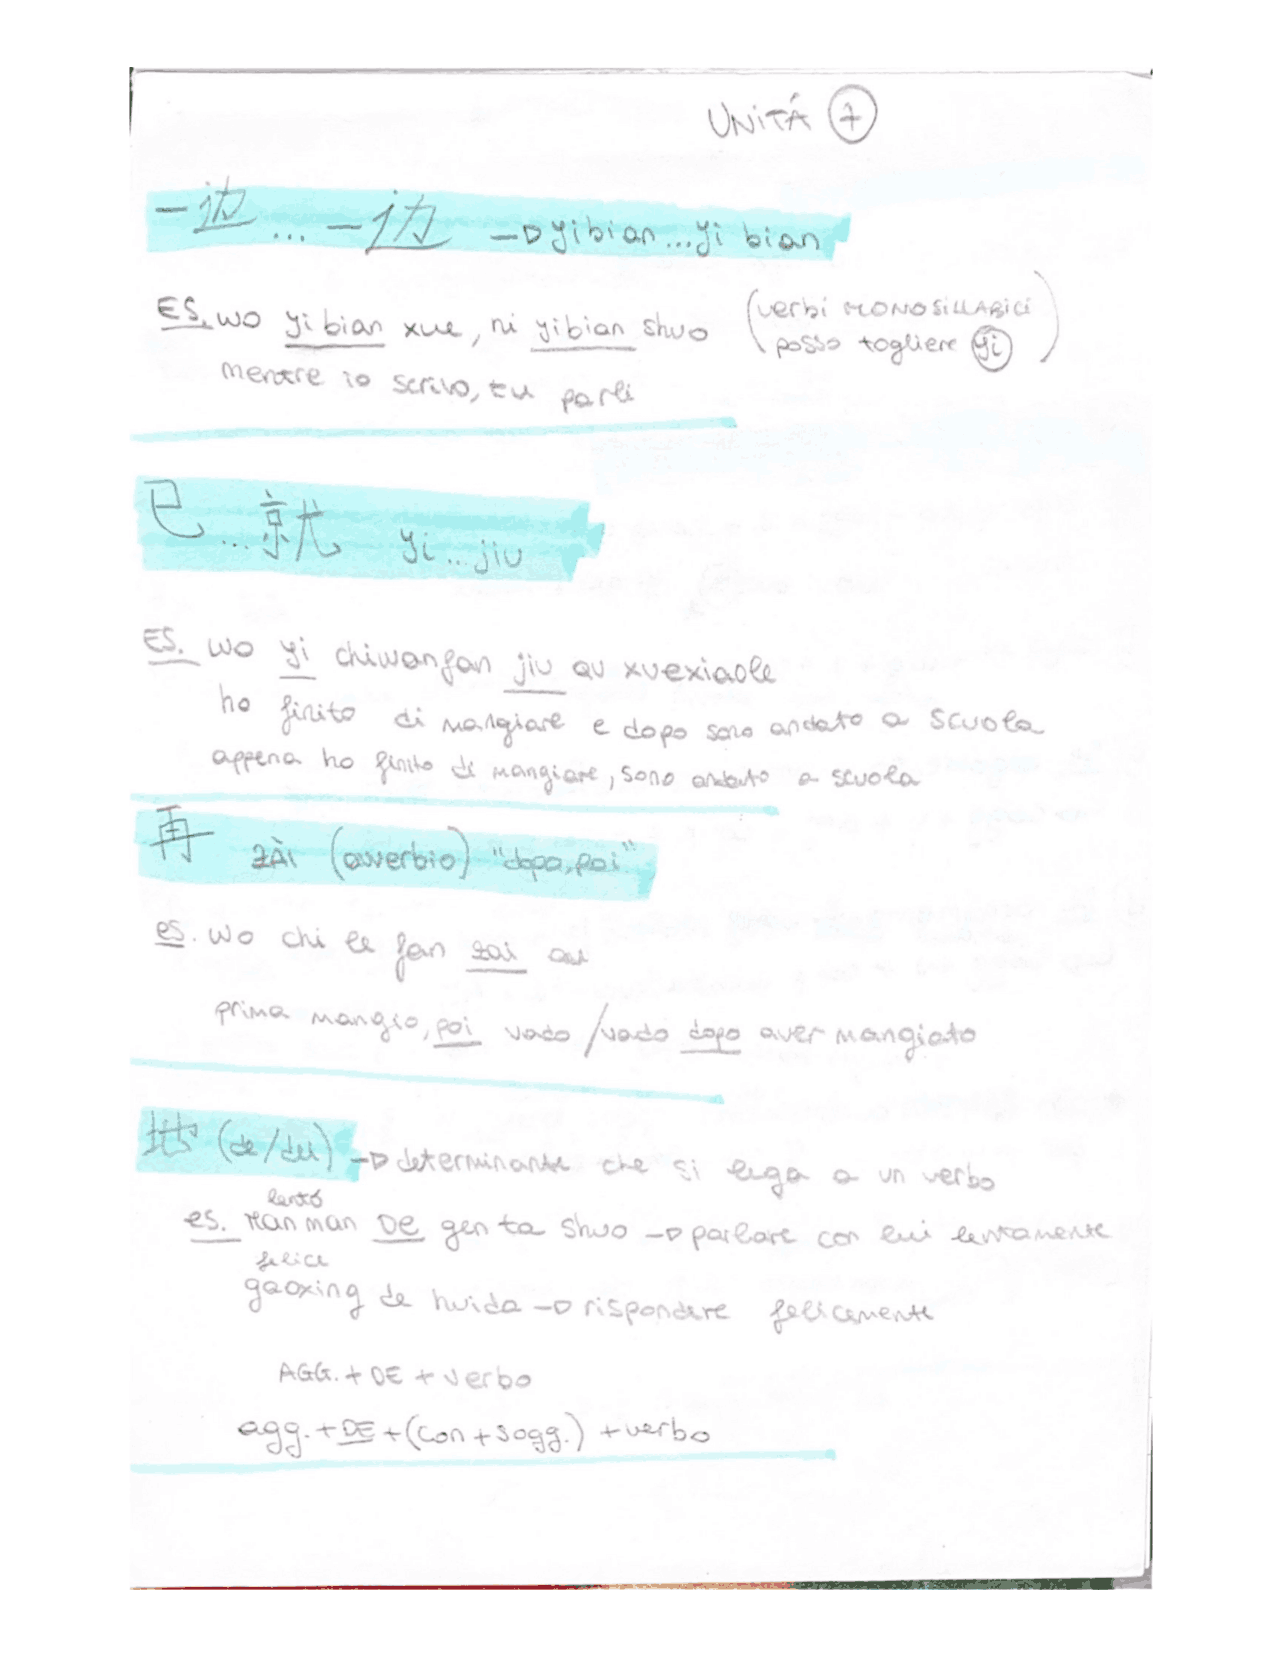 UNITÁ 7
一边...一边 → yibian...yi bian
ES. wo yibian xue, ni yibian shuo (verbi MONOSILLABICI posso togliere yi)
mentre io scrivo, tu parli
已...就 yi...jiu
ES. wo yi chiwanfan jiu qu xuexiaole
ho finito di mangiare e dopo sono andato a scuola
appena ho finito di mangiare, sono andato a scuola
再 zài (avverbio) "dopo, poi"
es. wo chi le fan zai qu
prima mangio, poi vado / vado dopo aver mangiato
地 (de/dei) → determinante che si lega a un verbo
lento
es. Man man DE gen ta shuo → parlare con lui lentamente
felice
gaoxing de huida → rispondere felicemente
AGG. + DE + verbo
agg. + DE + (con + sogg.) + verbo